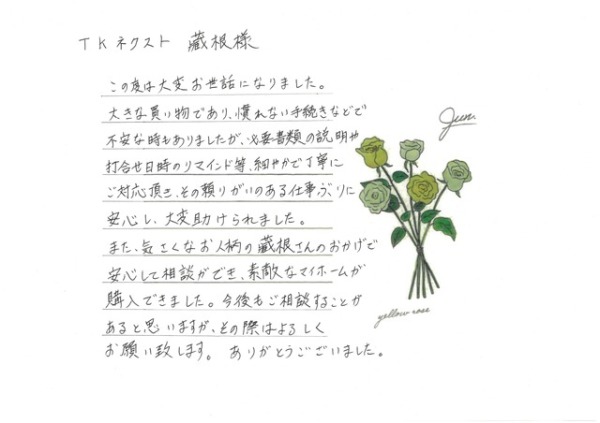 TKネクスト 蔵根様
この度は大変お世話になりました。
大きな買い物であり、慣れない手続きなどで
不安な時もありましたが、必要書類の説明や
打合せ日時のリマインド等、細やかで丁寧に
ご対応頂き、その頼りがいのある仕事ぶりに
安心し、大変助けられました。
また、気さくなお人柄の蔵根さんのおかげで
安心して相談ができ、素敵なマイホームが
購入できました。今後もご相談することが
あると思いますが、その際はよろしく
お願い致します。 ありがとうございました。
Jun.
yellow rose